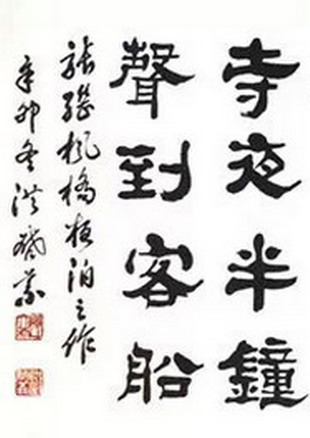 寺夜半鐘
聲到客船
張繼楓橋夜泊之作
辛卯冬洪